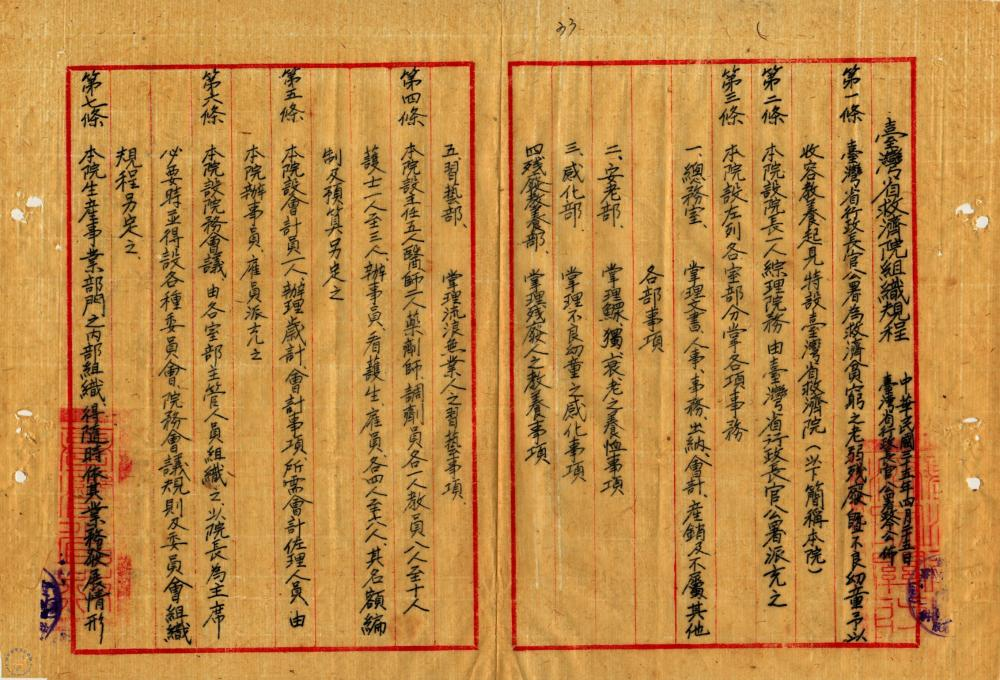 33
臺灣省救濟院組織規程
中華民國三五年四月十五日
臺灣省行政長官公署公佈
第一條 臺灣省行政長官公署為救濟貧窮之老弱殘廢暨不良幼童予以
收容教養起見特設臺灣省救濟院(以下簡稱本院)
第二條 本院設院長一人綜理院務由臺灣省行政長官公署派充之
第三條 本院設左列各室部分掌各項事務
一、總務室、掌理文書、人事、事務、出納、會計、產銷及不屬其他
各部事項
二、安老部、掌理鰥獨衰老之養恤事項
三、感化部、掌理不良幼童之感化事項
四殘廢教養部、掌理殘廢人之教養事項
五、習藝部、掌理流浪無業人之習藝事項
第四條 本院設主任五人醫師二人藥劑師調劑員各一人教員八人至十人
護士一人至三人辦事員、看護生、雇員各四人至六人其名額編
制及預算另定之
第五條 本院設會計員一人辦理歲計、會計事項所需會計佐理人員由
本院辦事員、雇員派充之
第六條 本院設院務會議由各室部主管人員組織之以院長為主席
必要時並得設各種委員會、院務會議規則及委員會組織
規程另定之
第七條 本院生產事業部門之內部組織得隨時依其業務發展情形